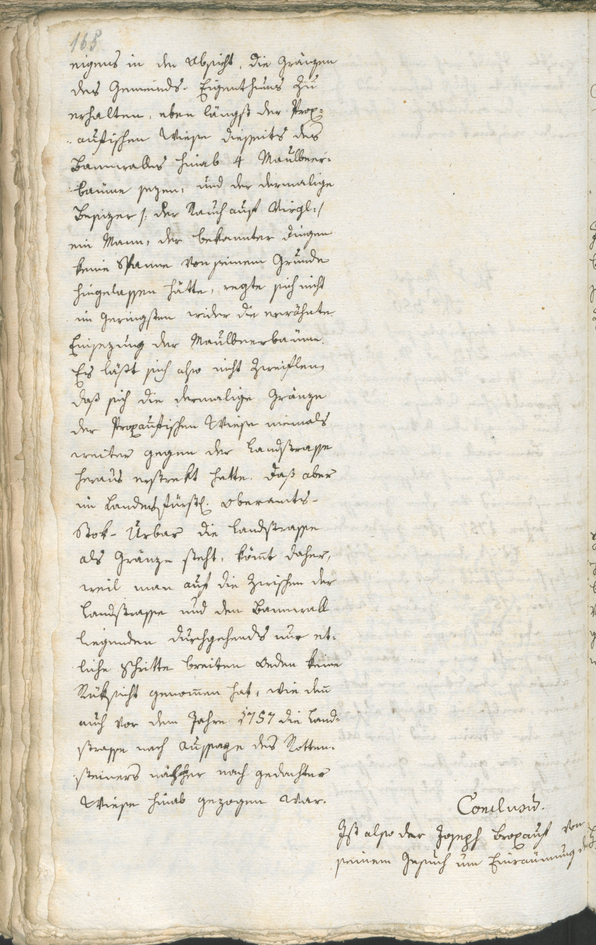 168
eigens in der Absicht, die Gränzen
des Gemeinds-Eigenthums zu
erhalten, eben längst der Prox-
aufischen Wiese diesseits des
Bannwalles hinab 4 Maulbeer-
bäume sezen, und der dermalige
Besizer /: der Rauch auf Virgl :/
ein Mann, der bekannter dingen
keine Spanne von seinem Grunde
hingelassen hätte, regte sich nicht
im Geringsten wider die erwähnte
Einsezung der Maulbeerbäume.
Es läßt sich also nicht zweiflen,
daß sich die dermalige Gränze
der Proxaufischen Wiese niemals
weiter gegen der Landstrasse
heraus erstrekt hatte. Daß aber
im Landesfürstl. Oberamts-
Stok-Urbar die Landstrasse
als Gränze steht, kömt daher,
weil man auf die zwischen der
Landstrasse und dem Bannwall
liegenden durchgehends nur et-
liche Schritte breiten Oeden keine
Rüksicht genomen hat, wie den
auch vor dem Jahre 1757 die Land-
strasse nach Aussage des Rotten-
steiners näher nach gedachter
Wiese hinab gezogen war.
Conclusum.
Ist also der Joseph Broxauf von
seinem Gesuch um Einraümung